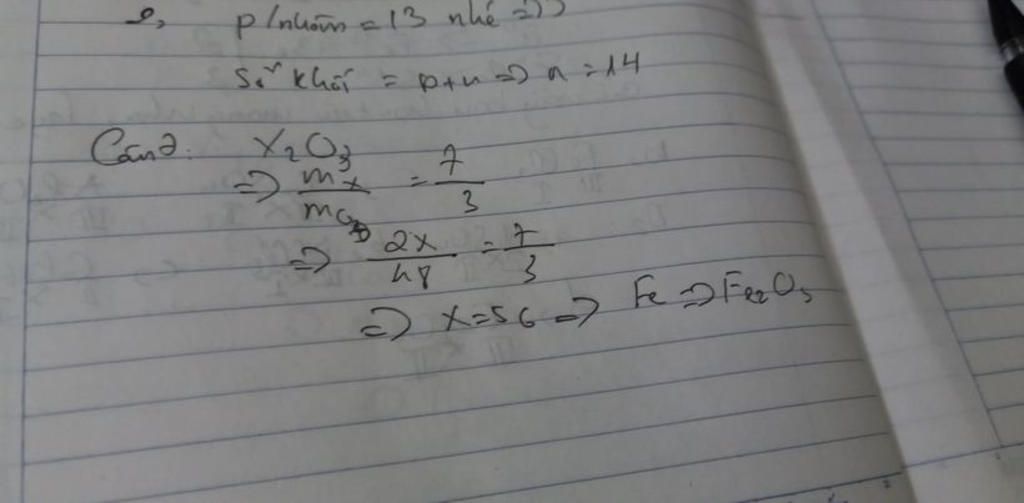 p/nhôm = 13 nhé =))
Số khối = p+n => n = 14
Câu 2: X₂O₃
=> mₓ / m = 7/3
=> 2x/48 = 7/3
=> X=56 => Fe => Fe₂O₃